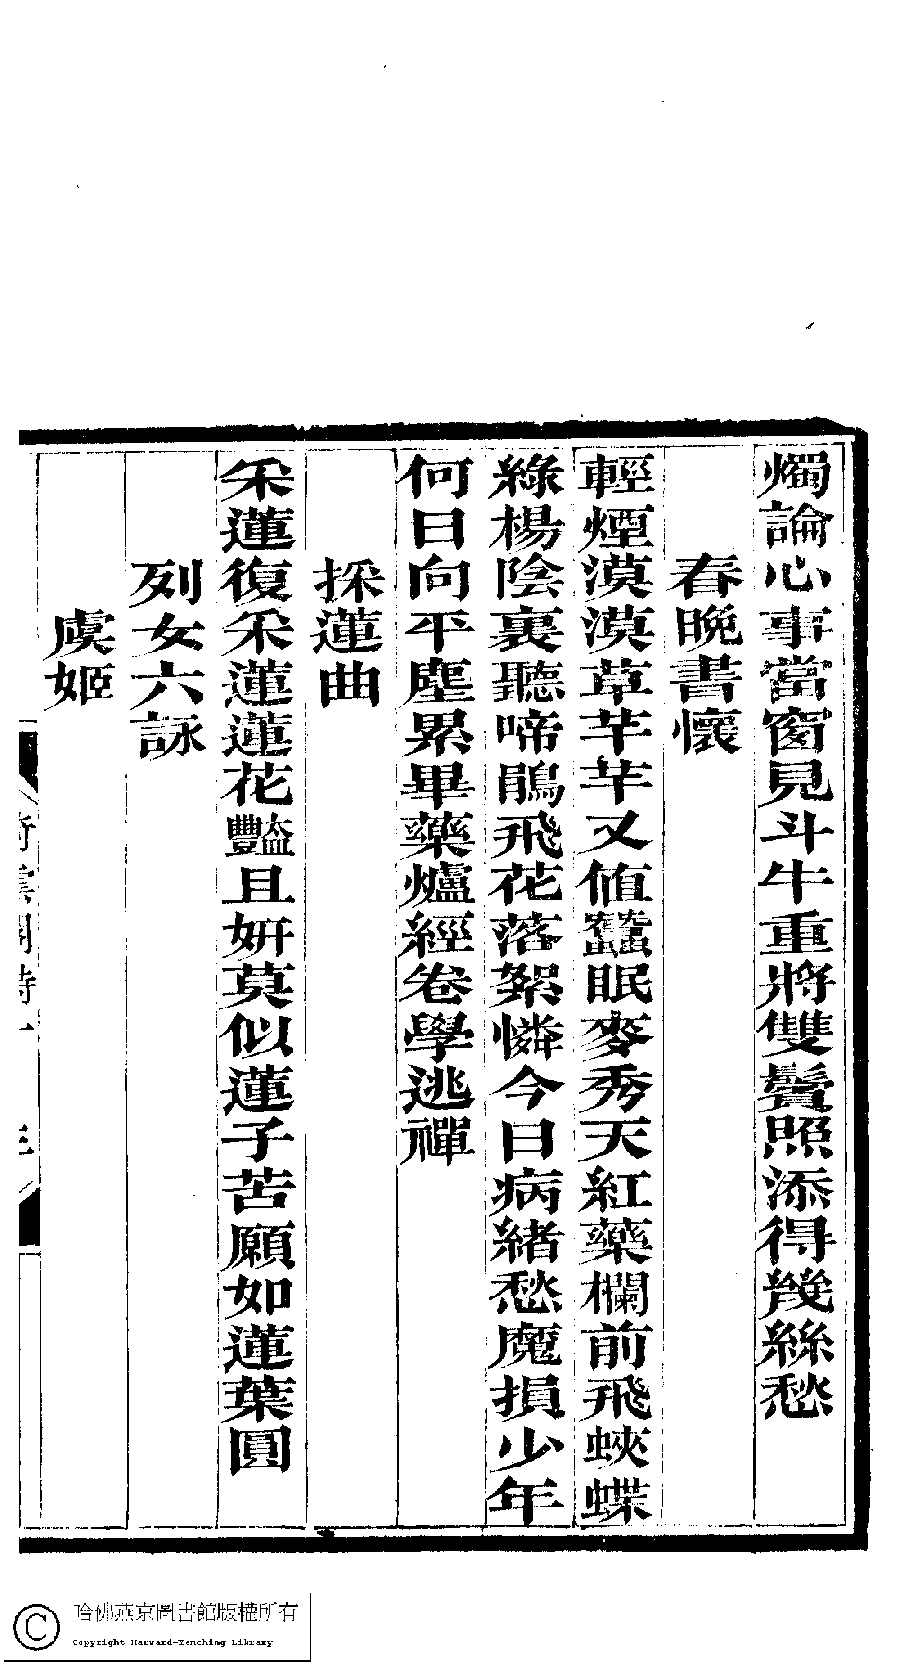 燭論心事當窗見斗牛重將雙鬢照添得幾絲愁
春晚書懷
輕煙漠漠草芊芊又値蠶眠麥秀天紅藥欄前飛蛺蝶
綠楊陰裏聽啼鵑飛花落絮憐今日病緒愁魔損少年
何日向平塵累畢藥爐經卷學逃禪
採蓮曲
采蓮復采蓮蓮花豔且妍莫似蓮子苦願如蓮葉圓
列女六詠
虞姬
哈佛燕京圖書館版權所有
Copyright Harvard-Yenching Library